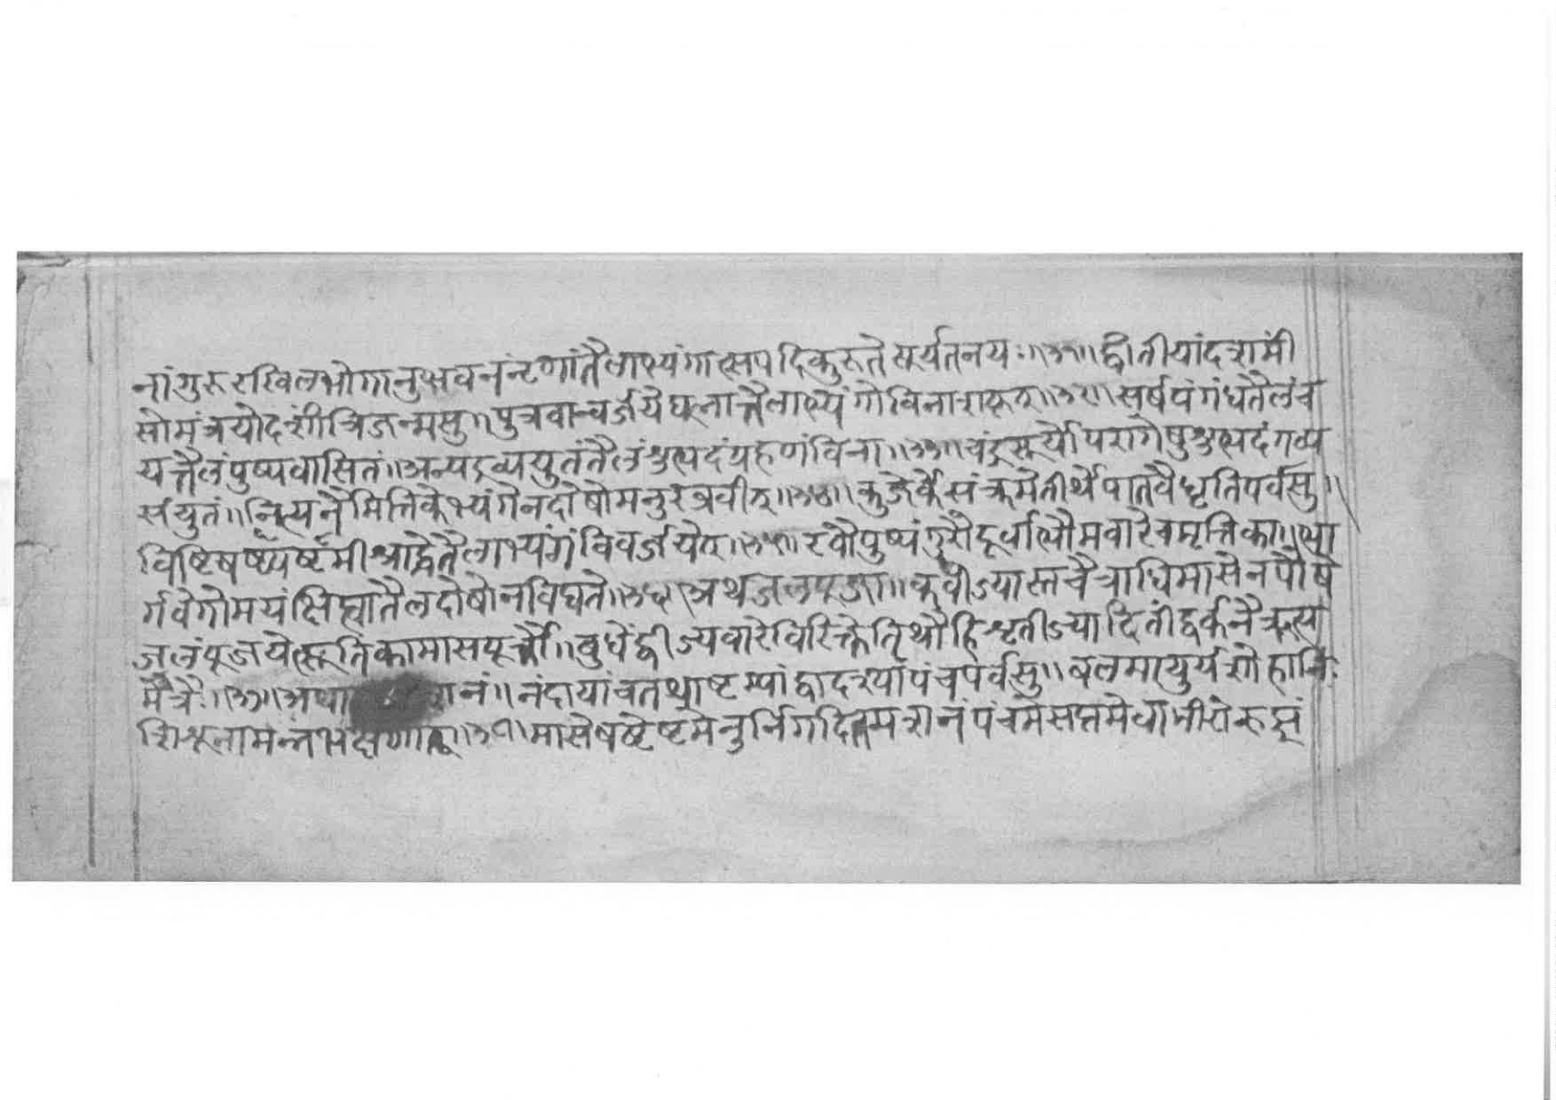 नां गुरुरखिलभोगानुभवनं नृणां तैलाभ्यंगात्सपदि कुरुते सूर्यतनयः॥३१॥ द्वितीयां दशमीं
सोमं त्रयोदशीं त्रिजन्मसु॥ पुत्रवान्वर्जयेद्घूलात्तैलाभ्यंगो विनाशकृत्॥३२॥ सर्षपं गंधतैलं च
यत्तैलं पुष्पवासितं॥ अन्यद्रव्ययुतं तैलं शुभदं ग्रहणं विना॥३३॥ चंद्रसूर्योपरागेषु शुभदं गव्य
संयुतं॥ नित्यनैमित्तिकेभ्यंगे न दोषो मनुरब्रवीत्॥३४॥ कुजेर्के संक्रमे तीर्थे पातवैधृतिपर्वसु॥
विष्टिषष्ठ्यष्टमीश्राद्धे तैलाभ्यंगं विवर्जयेत्॥३५॥ रवौ पुष्पं गुरौ दूर्वा भौमवारे च मृत्तिका॥ भा
र्गवे गोमयं क्षिप्त्वा तैलदोषो न विद्यते॥३६॥ अथ जलपूजा॥ कवीज्यास्तचैत्राधिमासे न पौषे
जलं पूजयेत्सूतिका मासपूर्त्तौ॥ बुधेंद्वीज्यवारे विरिक्ते तिथौ हि श्रुतीज्यादितींद्वर्कनैऋत्य
मैत्रैः॥३७॥ अथा नं॥ नंदायां च तथाष्टम्यां द्वादश्यां पंचपर्वसु॥ बलमायुर्यशोहानिः
शिशूनामन्नभक्षणात्॥३८॥ मासे षष्टेष्टमे नुर्निगदितमशनं पंचमे सप्तमे वा